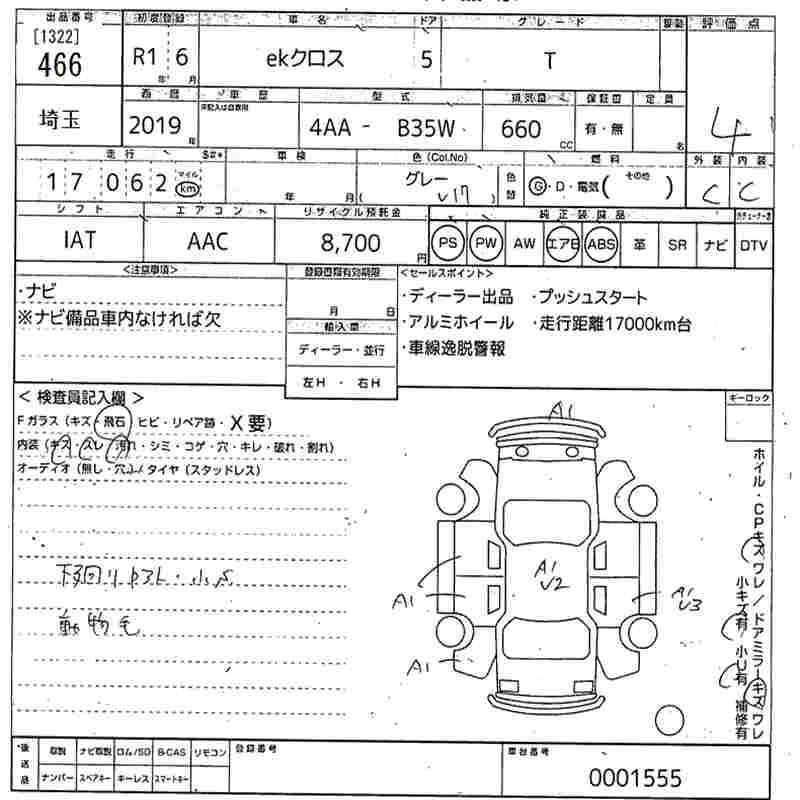 出品番号 初度登録 車名 ドア グレード 駆動 評価点
[1322]
466 R1 6 ekクロス 5 T
年 月
4
西暦 車歴 型式 排気量 保証書 定員
未記入は自家用
埼玉 2019 4AA - B35W 660 有・無
年 CC 名
走行 S#* 車検 色(Col.No) 燃料 外装 内装
17062 マイル km 年 月 グレー V17 色替 G・D・電気( その他 ) C C
シフト エアコン リサイクル預託金 純正装備品
IAT AAC 8,700 円 PS PW AW エアB ABS 革 SR ナビ DTV
<注意事項> 登録書類有効期限 <セールスポイント>
・ナビ
※ナビ備品車内なければ欠
月 日
輸入車
ディーラー・並行
左H ・ 右H
・ディーラー出品 ・プッシュスタート
・アルミホイール ・走行距離17000km台
・車線逸脱警報
キーロック
<検査員記入欄>
Fガラス(キズ 飛石 ヒビ・リペア跡・X要)
内装(キズ・スレ・汚れ・シミ・コゲ・穴・キレ・破れ・割れ)
オーディオ(無し・穴)/タイヤ(スタッドレス)
小キ
動物毛
A1
A1
A1
A1
U2
A1
U3
ホイル・CPキズ ワレ/ドアミラーキズ ワレ
小キズ有 小U有 補修有
後送品 取説 ナビ取説 ロム/SD B-CAS リモコン 登録番号 車台番号
ナンバー スペアキー キーレス スマートキー 0001555